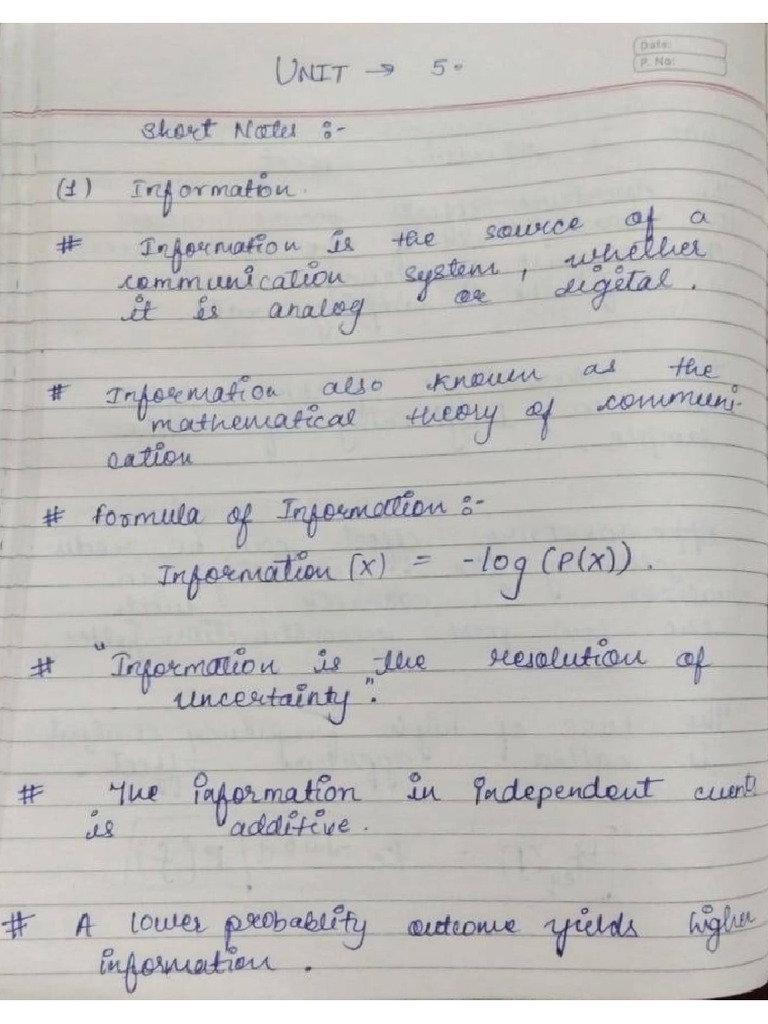 Date:
P. No:
UNIT → 5.
Short Notes :-
(1) Information.
# Information is the source of a
communication system, whether
it is analog or digital.
# Information also known as the
mathematical theory of communi-
cation
# formula of Information :-
Information (X) = -log (P(X)).
# "Information is the resolution of
uncertainty".
# The information in independent events
is additive.
# A lower probablity outcome yields higher
information.